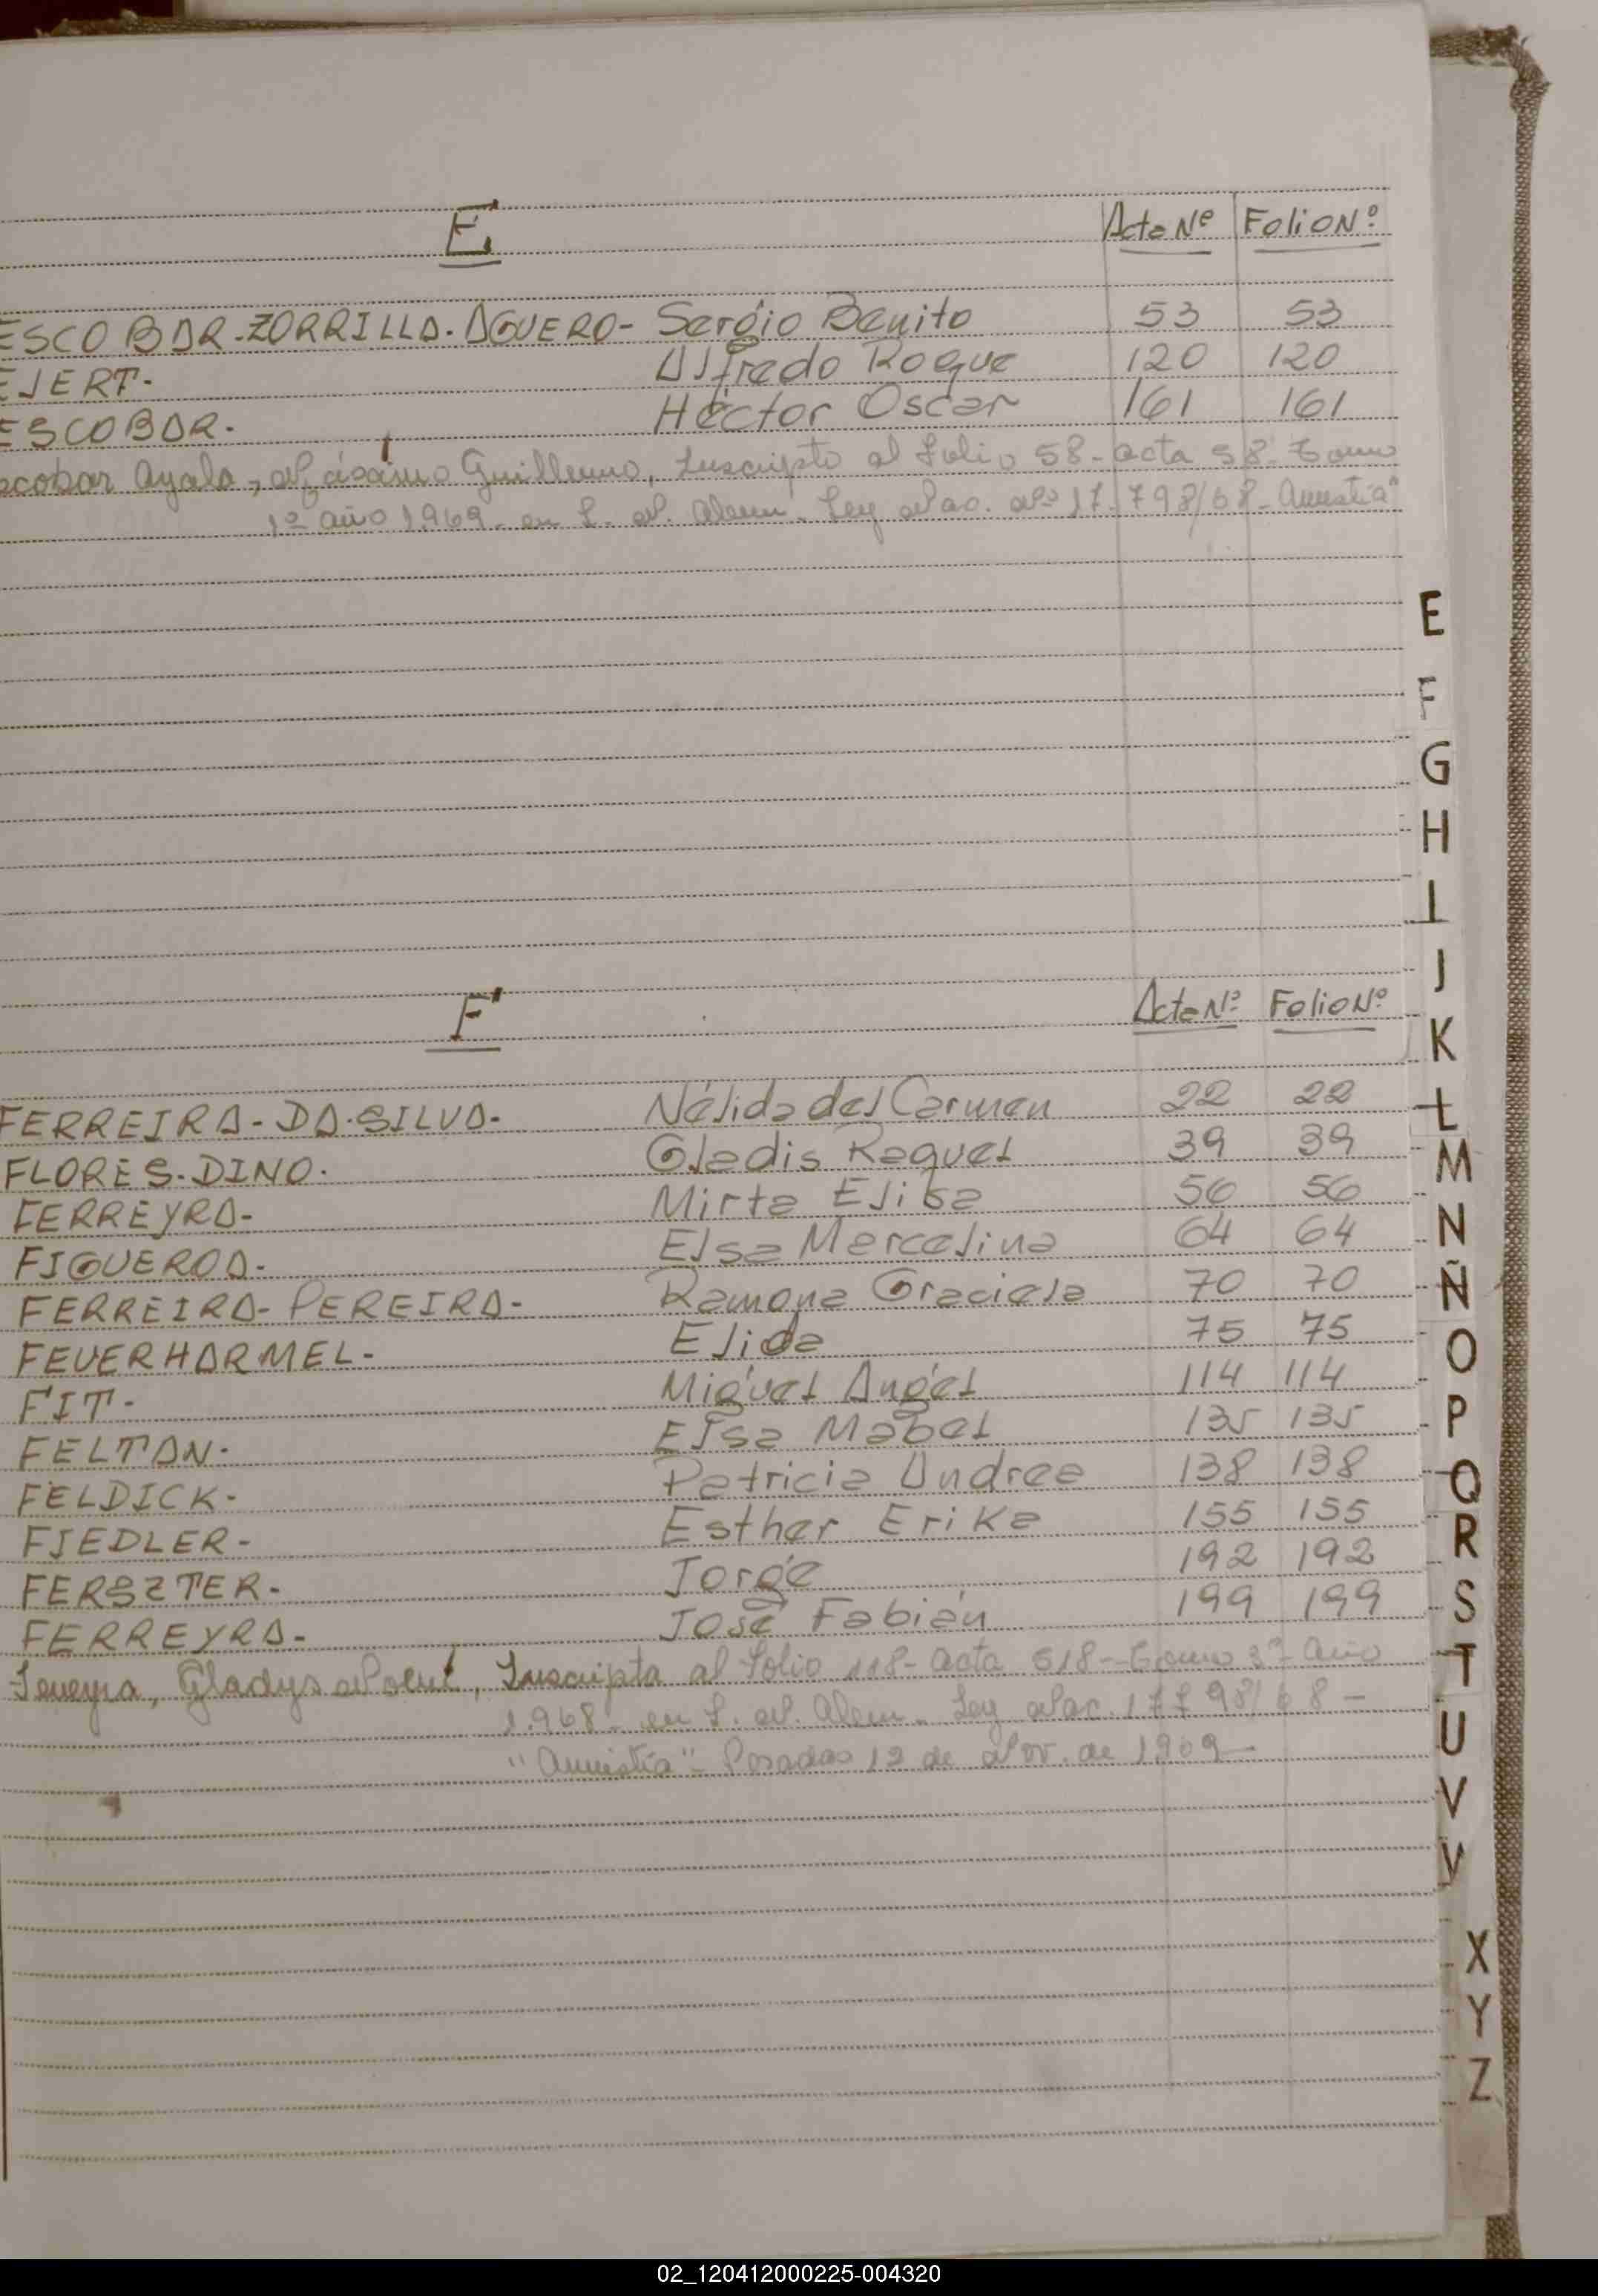 E
Acta Nº Folio Nº
ESCOBAR-ZORRILLA-AGUERO- Sergio Benito 53 53
EJERT- Alfredo Roque 120 120
ESCOBAR- Héctor Oscar 161 161
Escobar Ayala, Guillermo, Inscripto al folio 58- acta 58- Tomo
1º año 1.969- en L. N. Alem- Ley Nac. Nº 17.798/68- Amnistía"
E
F
G
H
I
J
K
L
M
N
Ñ
O
P
Q
R
S
T
U
V
W
X
Y
Z
F
Acta Nº Folio Nº
FERREIRA-DA-SILVA- Nélida del Carmen 22 22
FLORES-DINO- Gladis Raquel 39 39
FERREYRA- Mirta Elisa 56 56
FIGUEROA- Elsa Marcelina 64 64
FERREIRA-PEREIRA- Ramona Graciela 70 70
FEUERHARMEL- Elida 75 75
FIT- Miguel Angel 114 114
FELTAN- Elsa Mabel 135 135
FELDICK- Patricia Andrea 138 138
FIEDLER- Esther Erika 155 155
FERSZTER- Jorge 192 192
FERREYRA- José Fabián 199 199
Gladys Noemí, Inscripta al folio 118- acta 518- Tomo 3º- año
1.968- en L. N. Alem- Ley Nac. 17798/68-
"Amnistía"- Posadas 12 de Nov. de 1969-
02_120412000225-004320